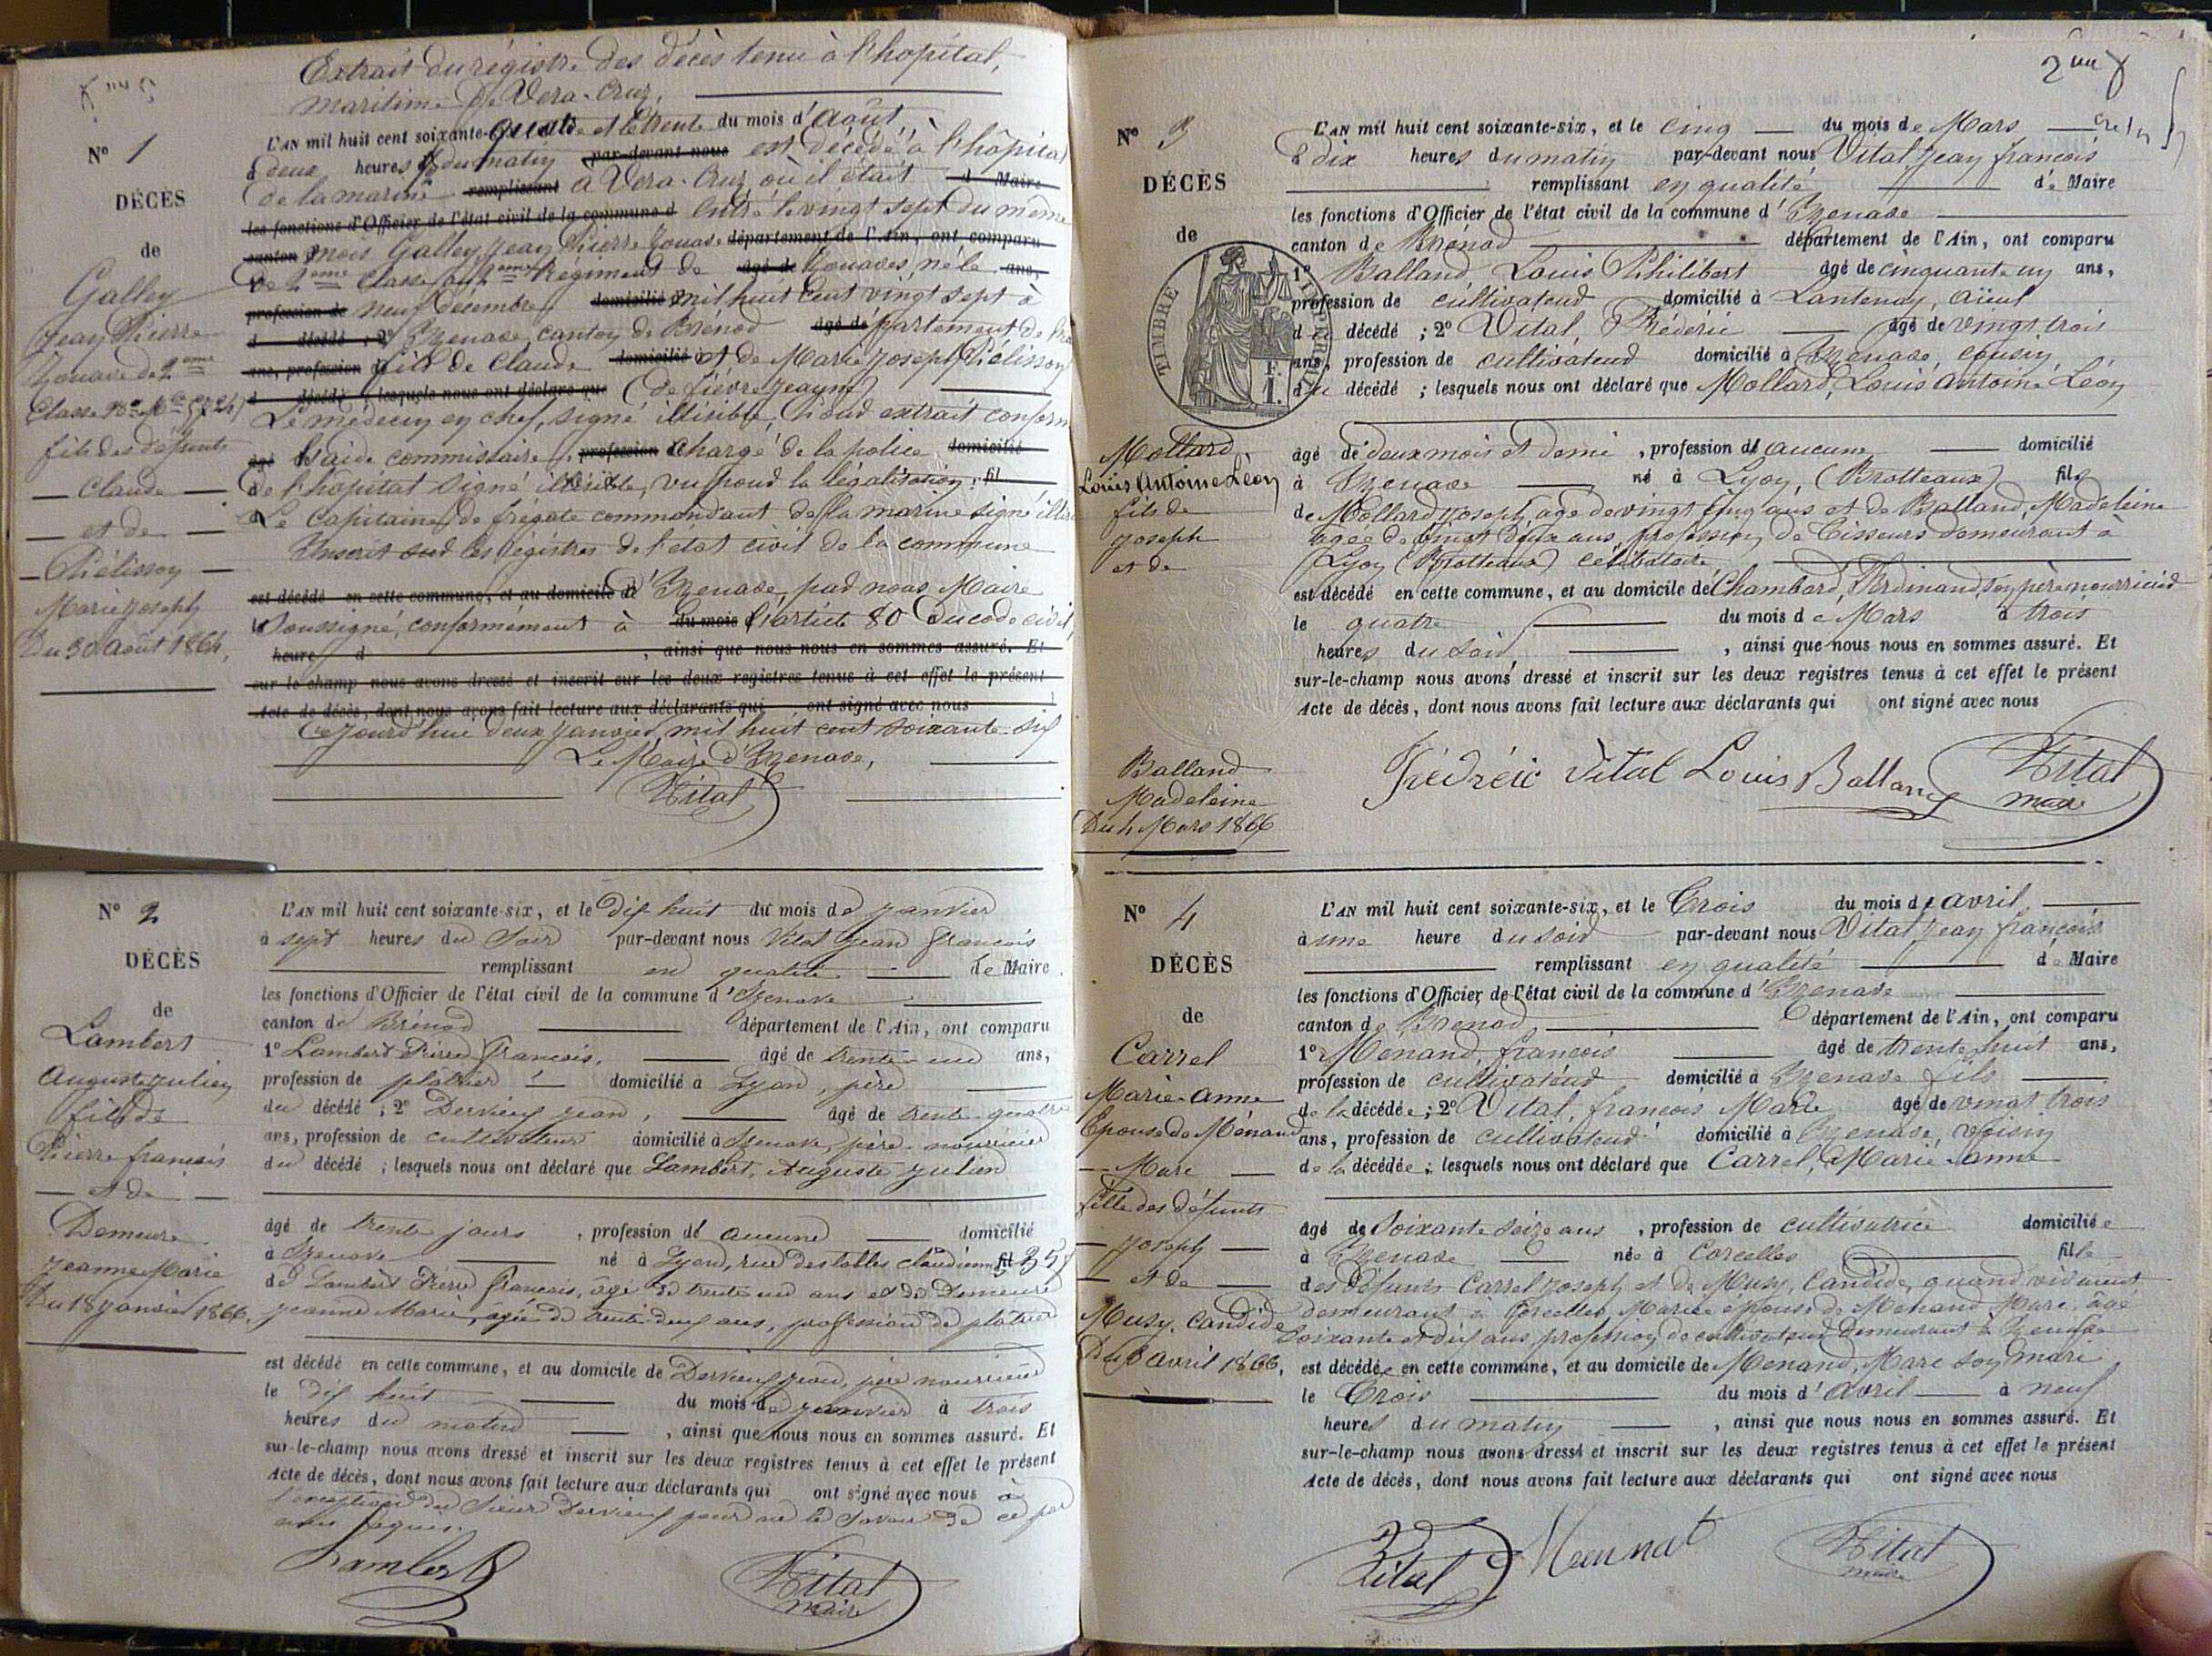 Extrait du régistre des décès tenu à l'hopital,
maritime de Vera-Cruz,
N° 1
DÉCÈS
de
Galley
Jean Pierre
Zouave de 2eme
Classe
fils des défunts
Claude
et de
Piélisson
Marie Joseph
Du 30 Août 1864,
L'AN mil huit cent soixante-quatre et le trente du mois d'Août
à deux heures du matin par-devant nous est décédé à l'hôpital
de la marine remplissant à Vera-Cruz, où il était d Maire
les fonctions d'Officier de l'état civil de la commune d entré le vingt sept du même
canton mois Galley, Jean Pierre Zouave département de l'Ain, ont comparu
de 2eme Classe au 2eme Régiment de agé de Zouaves, né le ans,
profession de neuf Décembre domicilié mil huit cent vingt sept à
d décédé ; 2° Izenave, canton de Brénod agé de département de l'Ain
ans, profession fils de Claude domicilié à et de Marie Joseph Piélisson
d décédé ; lesquels nous ont déclaré que (de fièvre jaune)
Le médecin en chef, signé illisible, Pour extrait conforme
agé L'aide commissaire, profession chargé de la police domicilié
de l'hopital signé illisible, vu pour la légalisation, fil
Le Capitaine de frégate commandant de la marine signé
Inscrit sur les régistres de l'état civil de la commune
est décédé en cette commune, et au domicile de d'Izenave, par nous Maire
le soussigné, conformément à du mois l'article 80 du code civil,
heure d , ainsi que nous nous en sommes assuré. Et
sur-le-champ nous avons dressé et inscrit sur les deux registres tenus à cet effet le présent
Acte de décès, dont nous avons fait lecture aux déclarants qui ont signé avec nous
Cejourd'hui deux Janvier mil huit cent soixante-six
Le Maire d'Izenave,
Vital
N° 2
DÉCÈS
de
Lambert
Auguste Julien
fils de
Pierre françois
et de
Demeure
Jeanne Marie
Du 18 Janvier 1866,
L'AN mil huit cent soixante-six, et le dix huit du mois de janvier
à sept heures du soir par-devant nous Vital Jean françois
remplissant en qualité de Maire
les fonctions d'Officier de l'état civil de la commune d'Izenave
canton de Brénod département de l'Ain, ont comparu
1° Lambert Pierre françois, agé de trente-un ans,
profession de plâtrier domicilié à Lyon, père
du décédé ; 2° Dervieux Jean, agé de trente-quatre
ans, profession de cultivateur domicilié à Izenave, père-nourricier
du décédé ; lesquels nous ont déclaré que Lambert, Auguste Julien
agé de trente jours , profession de aucune domicilié
à Izenave né à Lyon, rue des tables claudiennes fil
de Lambert Pierre françois, âgé de trente-un ans et de Demeure
Jeanne Marie, âgée de trente-deux ans, profession de plâtrier
est décédé en cette commune, et au domicile de Dervieux Jean, père nourricier
le dix huit du mois de janvier à trois
heures du matin , ainsi que nous nous en sommes assuré. Et
sur-le-champ nous avons dressé et inscrit sur les deux registres tenus à cet effet le présent
Acte de décès, dont nous avons fait lecture aux déclarants qui ont signé avec nous à
l'exception du Sieur Dervieux pour ne le savoir de ce par
nous requis.
Lambert
Vital
maire
2me
N° 3
DÉCÈS
de
TIMBRE IMPERIAL
F.
1.
Mollard
Louis Antoine Léon
fils de
Joseph
et de
Balland
Madeleine
Du 4 Mars 1866
L'AN mil huit cent soixante-six, et le cinq du mois de Mars
à dix heures du matin par-devant nous Vital Jean françois
remplissant en qualité de Maire
les fonctions d'Officier de l'état civil de la commune d'Izenave
canton de Brénod département de l'Ain, ont comparu
1° Balland, Louis Philibert agé de cinquante un ans,
profession de cultivateur domicilié à Lantenay, aïeul
du décédé ; 2° Vital, Frédéric agé de vingt trois
ans, profession de cultivateur domicilié à Izenave, cousin
du décédé ; lesquels nous ont déclaré que Mollard, Louis Antoine Léon
agé de deux mois et demi , profession de aucune domicilié
à Izenave né à Lyon, (Brotteaux) fils
de Mollard Joseph, agé de vingt cinq ans et de Balland, Madeleine
agée de vingt deux ans, profession de Tisseurs demeurant à
Lyon (Brotteaux) célibataire
est décédé en cette commune, et au domicile de Chambard, Ferdinand, son père nourricier
le quatre du mois de Mars à trois
heures du soir , ainsi que nous nous en sommes assuré. Et
sur-le-champ nous avons dressé et inscrit sur les deux registres tenus à cet effet le présent
Acte de décès, dont nous avons fait lecture aux déclarants qui ont signé avec nous
Frédréic Vital Louis Balland Vital
maire
N° 4
DÉCÈS
de
Carrel
Marie-Anne
Epouse de Ménand
Marc
fille des défunts
Joseph
et de
Musy, Candide
Du 3 avril 1866,
L'AN mil huit cent soixante-six, et le Trois du mois d'avril
à une heure du soir par-devant nous Vital Jean françois
remplissant en qualité de Maire
les fonctions d'Officier de l'état civil de la commune d'Izenave
canton de Brenod département de l'Ain, ont comparu
1° Ménand, françois agé de trente huit ans,
profession de cultivateur domicilié à Izenave fils
de la décédée ; 2° Vital, françois Marie agé de vingt trois
ans, profession de cultivateur domicilié à Izenave, voisin
de la décédée ; lesquels nous ont déclaré que Carrel, Marie-anne
agé de Soixante seize ans , profession de cultivatrice domiciliée
à Izenave née à Corcelles fille
des défunts Carrel Joseph et de Musy, Candide, quand vivaient
demeurant à Corcelles, Mariée épouse de Menand Marc, âgé
soixante et dix ans, profession de cultivateur demeurant à Izenave
est décédée en cette commune, et au domicile de Menand, Marc son mari
le Trois du mois d'avril à neuf
heures du matin , ainsi que nous nous en sommes assuré. Et
sur-le-champ nous avons dressé et inscrit sur les deux registres tenus à cet effet le présent
Acte de décès, dont nous avons fait lecture aux déclarants qui ont signé avec nous
Vital
Vital
maire